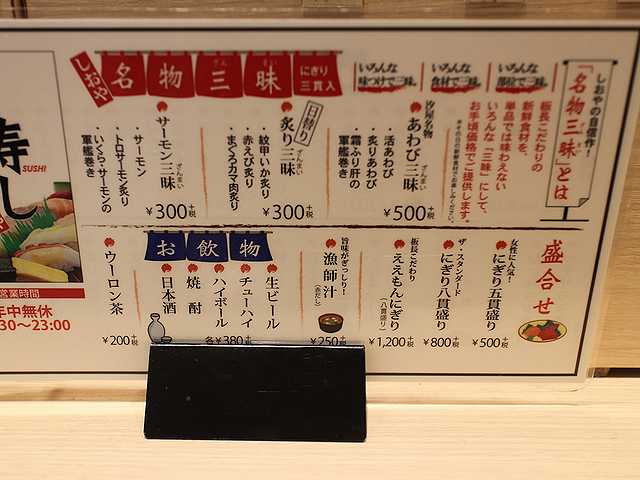 しおや
名物三昧
にぎり
三貫入
いろんな
味つけで三昧
いろんな
食材で三昧
いろんな
部位で三昧
しおやの自信作!
「名物三昧」とは
板長こだわりの
新鮮食材を、
単品では味わえない
いろんな「三昧」にして、
お手頃価格でご提供します。
汐屋名物
あわび三昧
ざんまい
・活あわび
・炙りあわび
・霜ふり肝の
軍艦巻き
¥500+税
日替り
炙り三昧
ざんまい
・紋甲いか炙り
・赤えび炙り
・まぐろカマ肉炙り
¥300+税
サーモン三昧
ざんまい
・サーモン
・トロサーモン炙り
・いくら・サーモンの
軍艦巻き
¥300+税
盛合せ
女性に人気!
にぎり五貫盛り
¥500+税
ザ・スタンダード
にぎり八貫盛り
¥800+税
板長こだわり
ええもんにぎり
(八貫盛り)
¥1,200+税
旨味がぎっしり!
漁師汁
(赤だし)
¥250+税
お飲物
生ビール
チューハイ
ハイボール
焼酎
日本酒
各¥380+税
ウーロン茶
¥200+税
寿し
SUSHI
営業時間
年中無休
30〜23:00